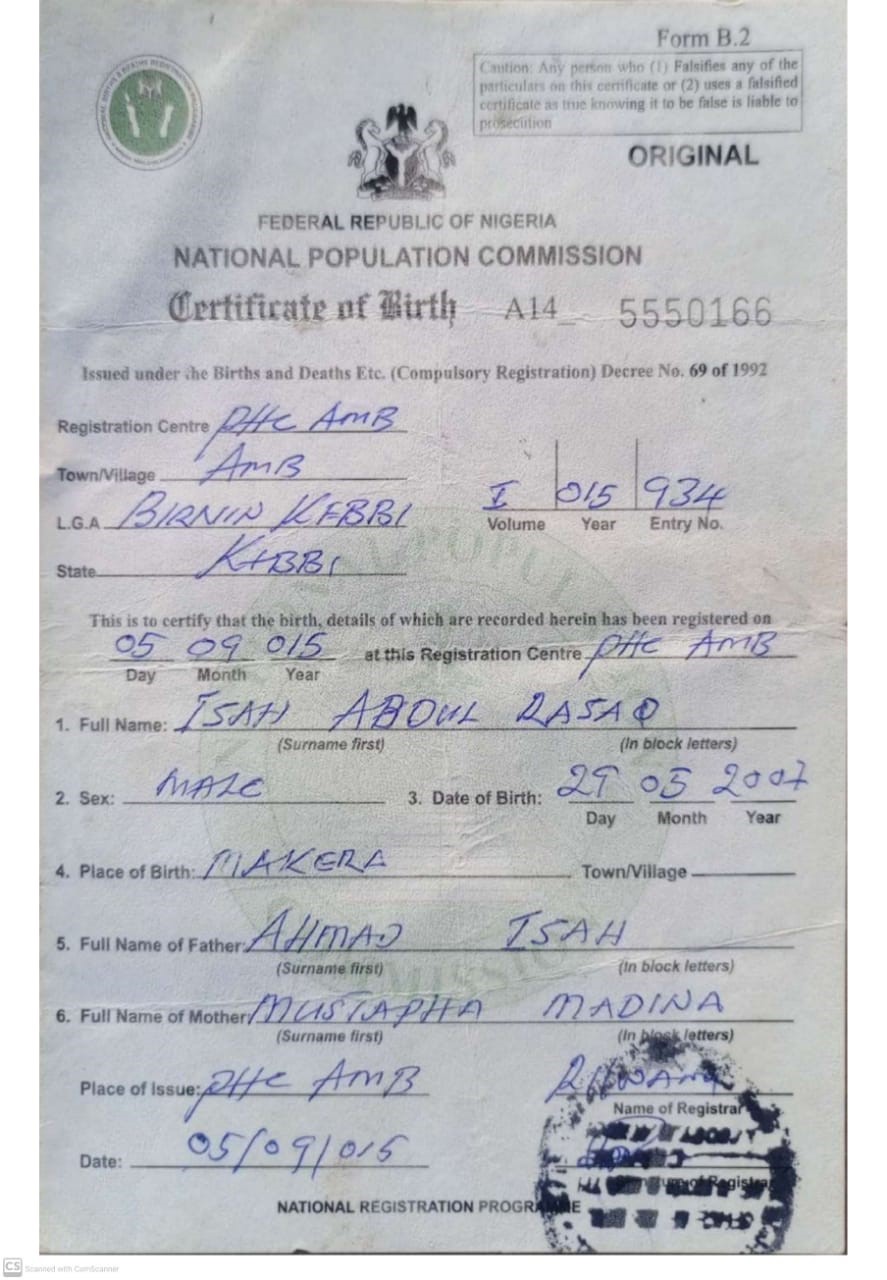 Form B.2
Caution: Any person who (1) Falsifies any of the
particulars on this certificate or (2) uses a falsified
certificate as true knowing it to be false is liable to
prosecution
ORIGINAL
FEDERAL REPUBLIC OF NIGERIA
NATIONAL POPULATION COMMISSION
Certificate of Birth A14_ 5550166
Issued under the Births and Deaths Etc. (Compulsory Registration) Decree No. 69 of 1992
Registration Centre PHC AMB
Town/Village AMB
L.G.A BIRNIN KEBBI
I 015 934
Volume Year Entry No.
State KEBBI
This is to certify that the birth, details of which are recorded herein has been registered on
05 09 015 at this Registration Centre PHC AMB
Day Month Year
1. Full Name: ISAH ABDUL RASAQ
(Surname first) (In block letters)
2. Sex: MALE 3. Date of Birth: 29 05 2007
Day Month Year
4. Place of Birth: MAKERA Town/Village
5. Full Name of Father: AHMAD ISAH
(Surname first) (In block letters)
6. Full Name of Mother: MUSTAPHA MADINA
(Surname first) (In block letters)
Place of Issue: PHC AMB
Name of Registrar
Date: 05/09/015
NATIONAL REGISTRATION PROGRAMME
CS Scanned with CamScanner